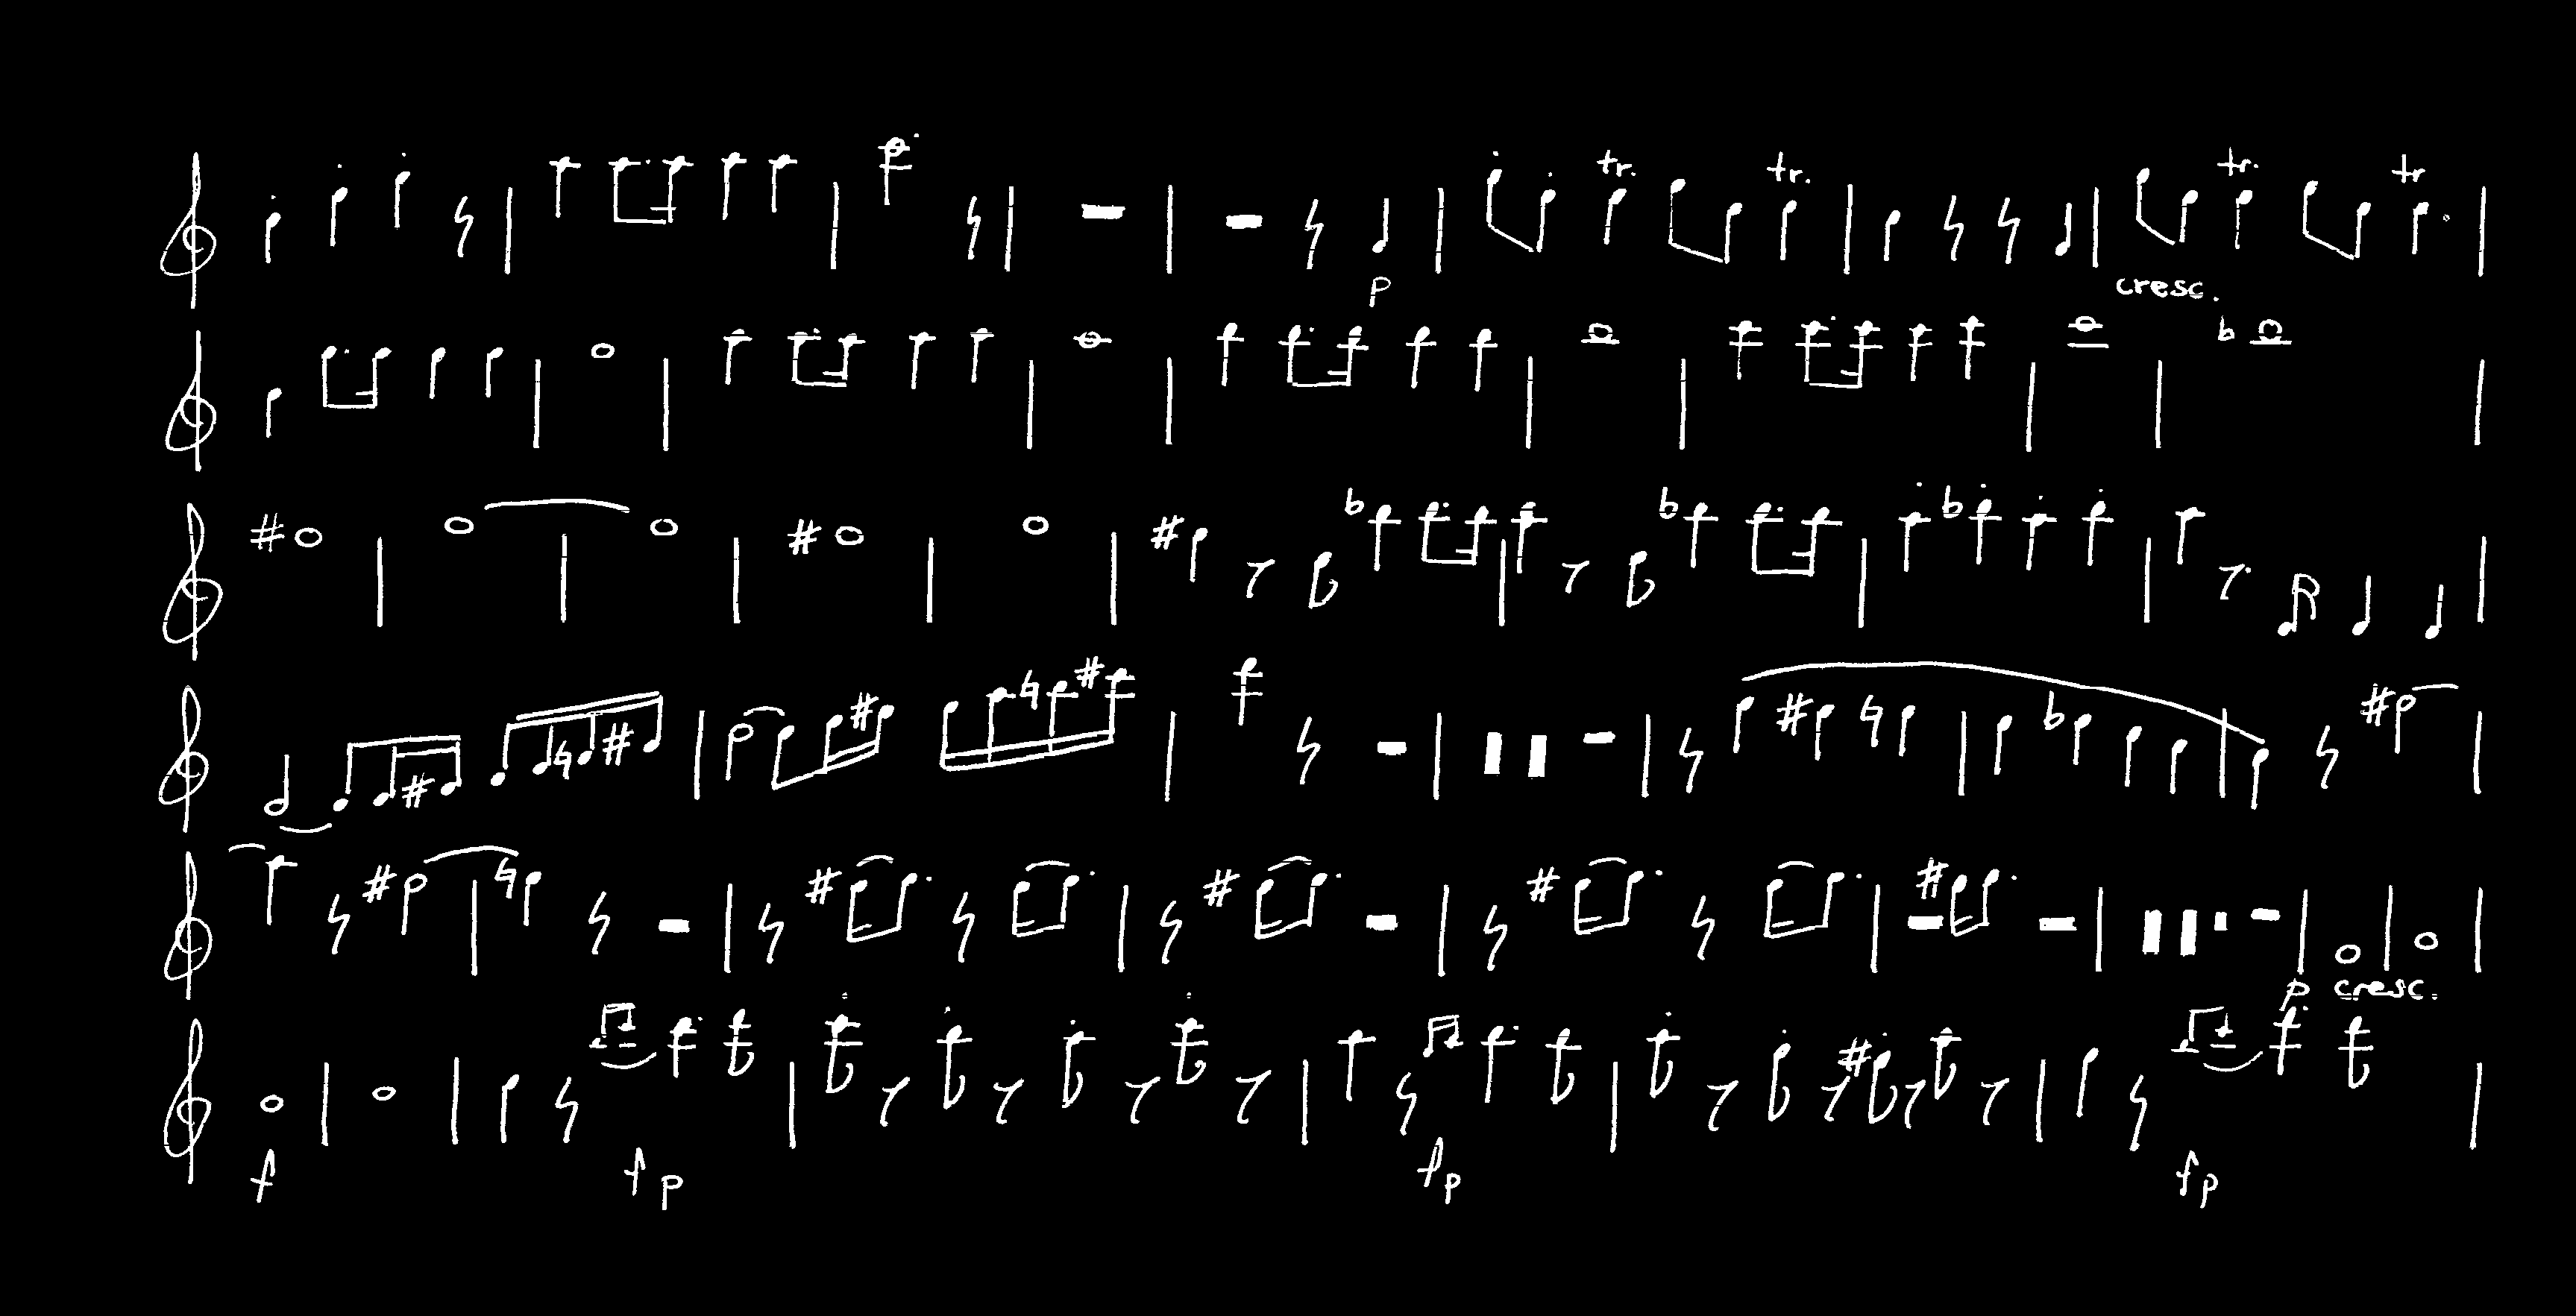 tr. tr. tr. tr
p cresc.
p cresc.
f fp fp fp